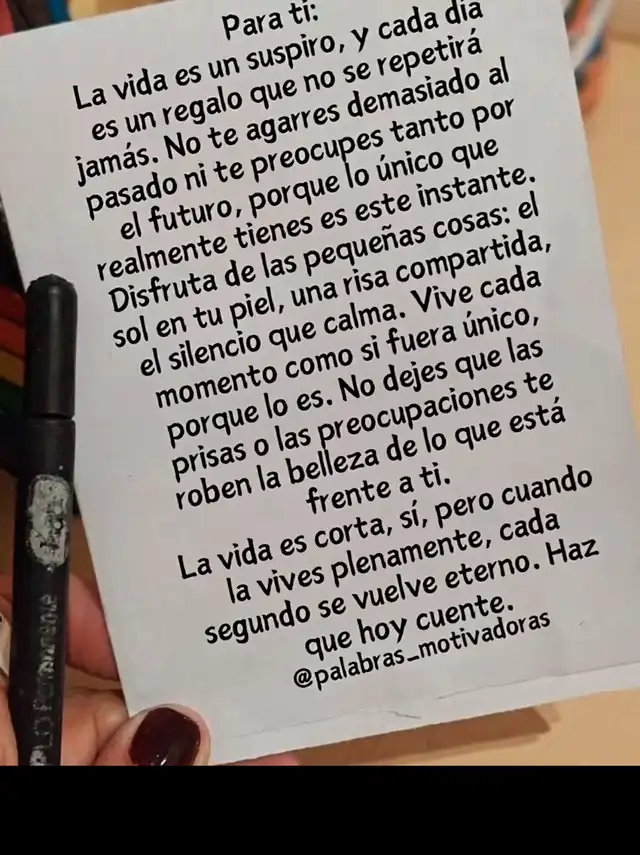 Para ti:
La vida es un suspiro, y cada día
es un regalo que no se repetirá
jamás. No te agarres demasiado al
pasado ni te preocupes tanto por
el futuro, porque lo único que
realmente tienes es este instante.
Disfruta de las pequeñas cosas: el
sol en tu piel, una risa compartida,
el silencio que calma. Vive cada
momento como si fuera único,
porque lo es. No dejes que las
prisas o las preocupaciones te
roben la belleza de lo que está
frente a ti.
La vida es corta, sí, pero cuando
la vives plenamente, cada
segundo se vuelve eterno. Haz
que hoy cuente.
@palabras_motivadoras